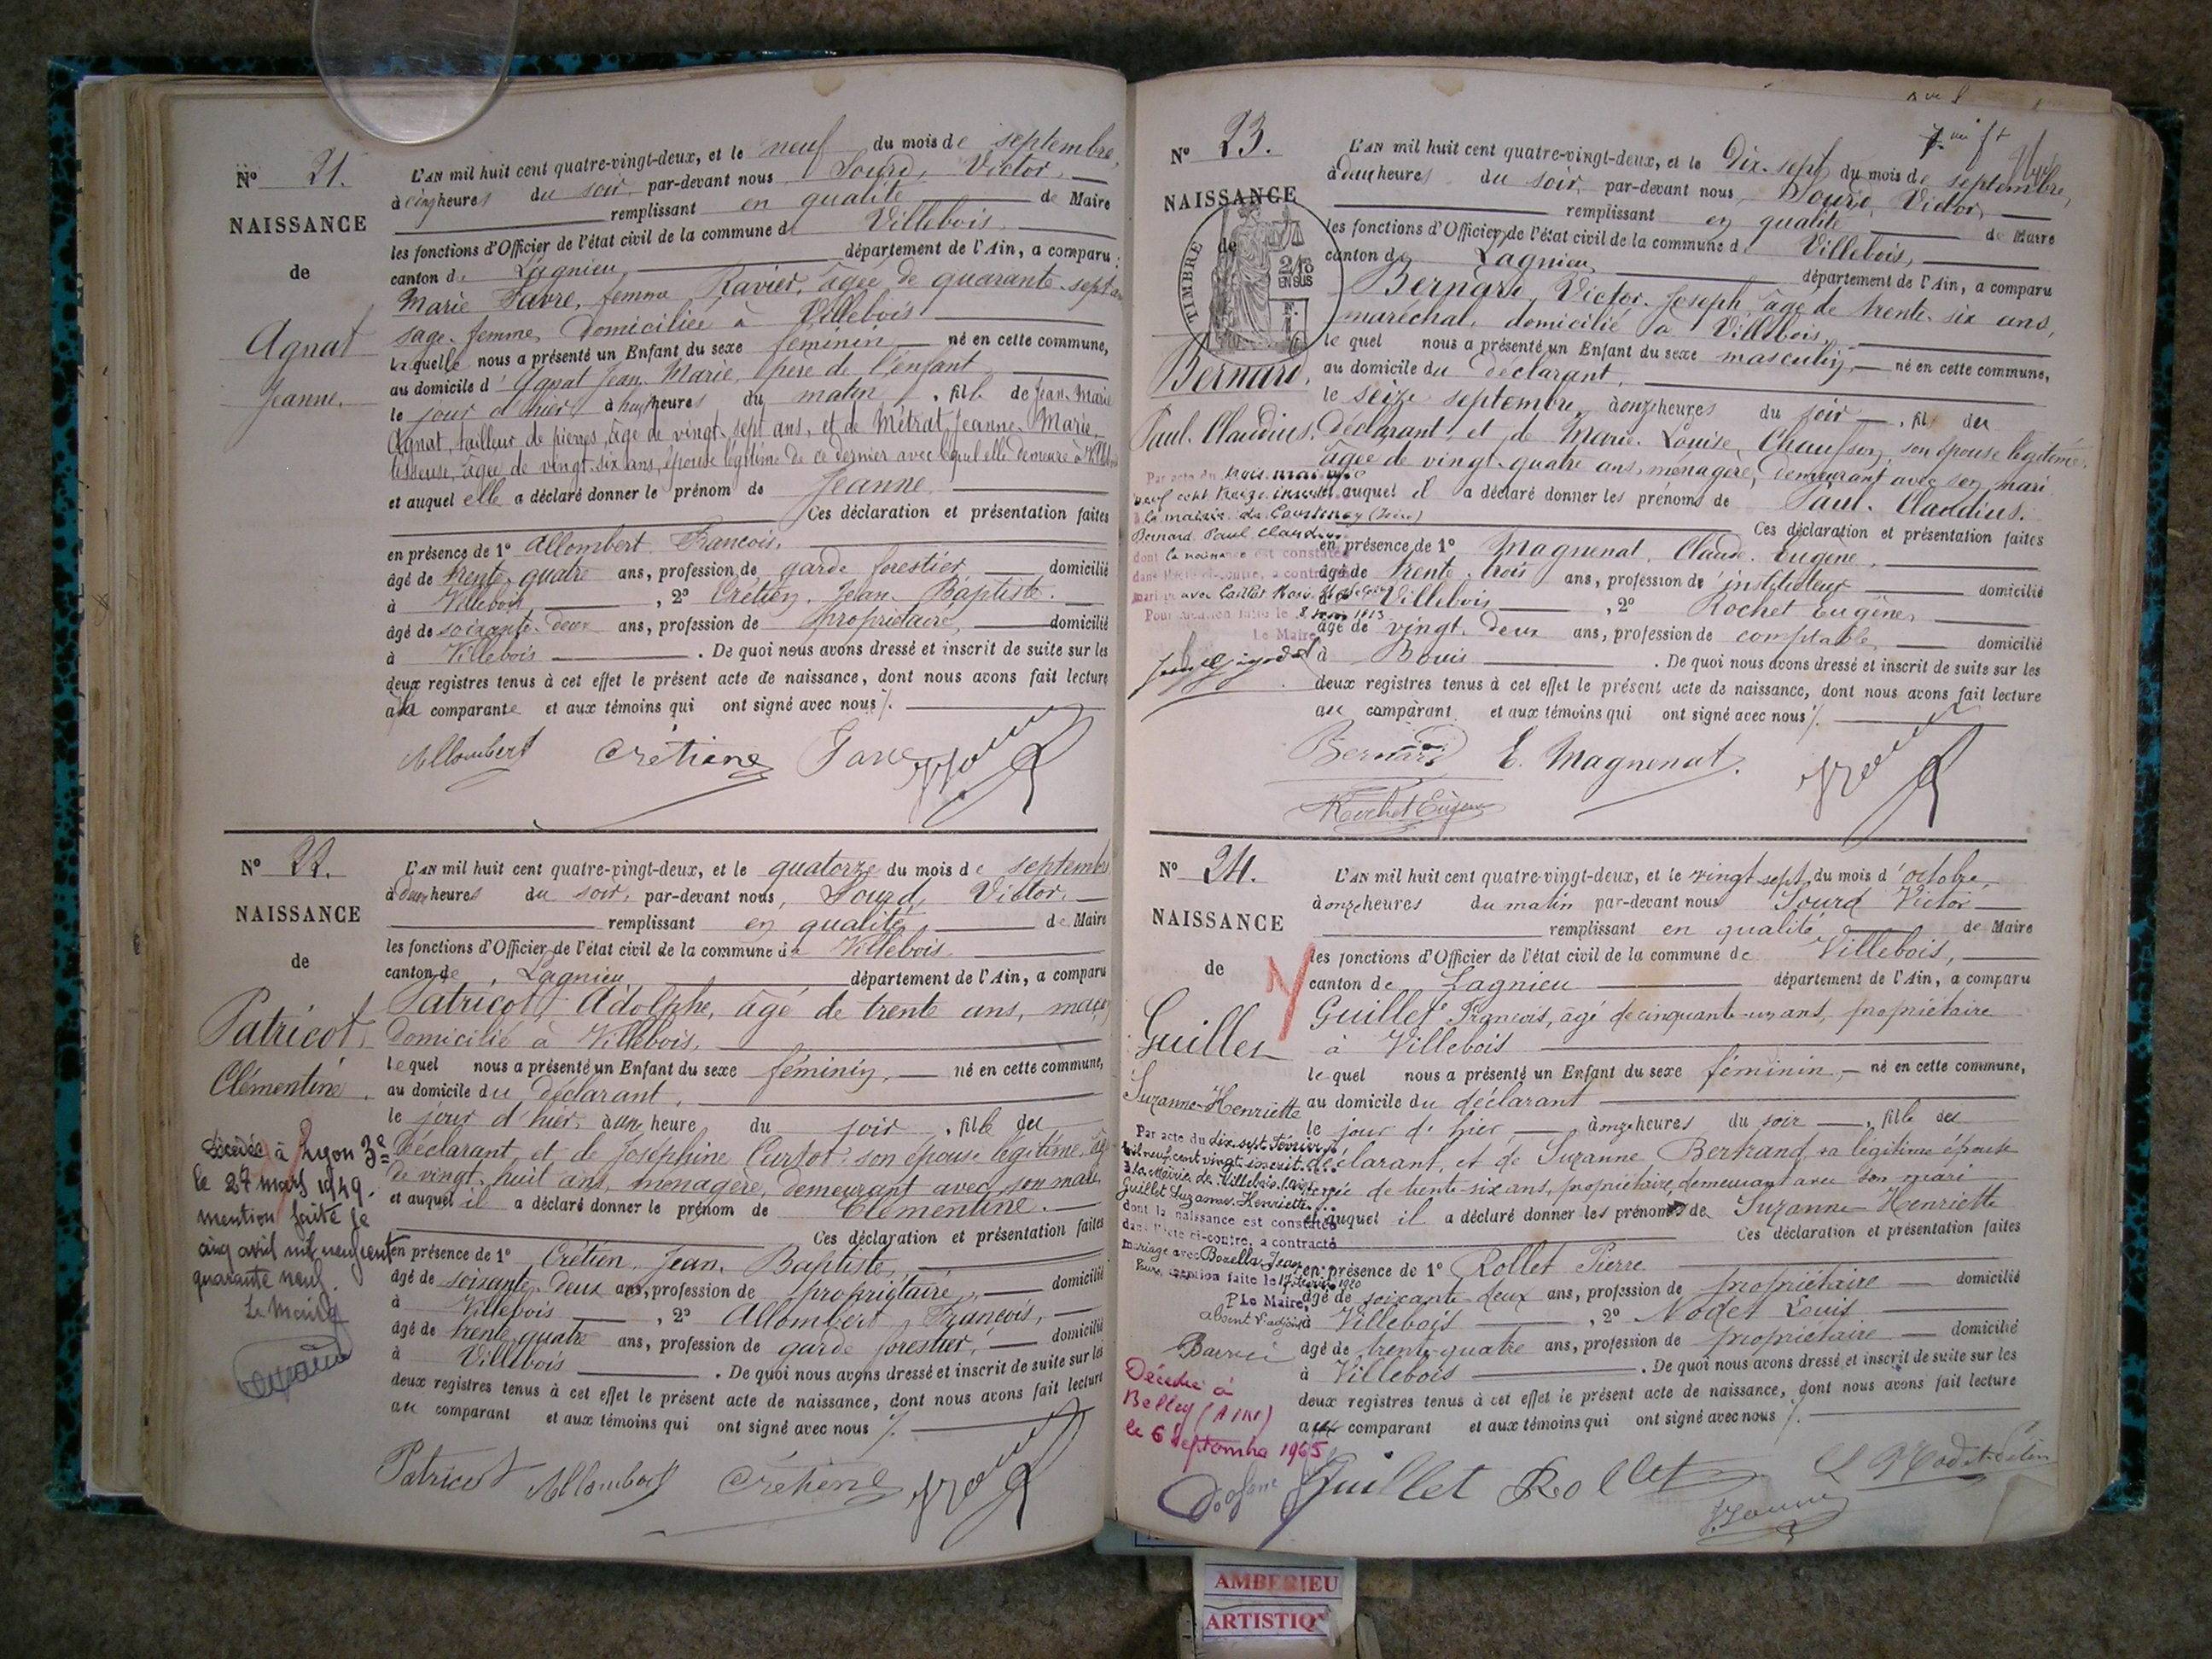 N° 21.
NAISSANCE
de
Agnat
Jeanne.
L'AN mil huit cent quatre-vingt-deux, et le neuf du mois de septembre,
à cinq heures du soir, par-devant nous, Sourd, Victor,
remplissant en qualité de Maire
les fonctions d'Officier de l'état civil de la commune de Villebois,
canton de Lagnieu, département de l'Ain, a comparu :
Marie Favre, femme Ravier, âgée de quarante-sept ans
sage-femme, domiciliée à Villebois
laquelle nous a présenté un Enfant du sexe féminin, né en cette commune,
au domicile d'Agnat Jean-Marie, père de l'enfant
le jour d'hier, à heures du matin, fille de Jean-Marie
Agnat, tailleur de pierres, âgé de vingt-sept ans, et de Métrat, Jeanne-Marie,
tisseuse, âgée de vingt-six ans, épouse légitime de ce dernier avec lequel elle demeure à Villebois
et auquel elle a déclaré donner le prénom de Jeanne.
Ces déclaration et présentation faites
en présence de 1° Allombert François,
âgé de trente-quatre ans, profession de garde forestier, domicilié
à Villebois, 2° Crétien, Jean-Baptiste.
âgé de soixante-deux ans, profession de propriétaire, domicilié
à Villebois. De quoi nous avons dressé et inscrit de suite sur les
deux registres tenus à cet effet le présent acte de naissance, dont nous avons fait lecture
à la comparante et aux témoins qui ont signé avec nous.
Allombert Crétiene Favre
N° 22.
NAISSANCE
de
Patricot,
Clémentine.
décédée à Lyon 3e
le 27 mars 1949.
mention faite le
cinq avril mil neuf cent
quarante neuf.
Le Maire
L'AN mil huit cent quatre-vingt-deux, et le quatorze du mois de septembre
à deux heures du soir, par-devant nous, Sourd, Victor,
remplissant en qualité de Maire
les fonctions d'Officier de l'état civil de la commune de Villebois
canton de Lagnieu, département de l'Ain, a comparu
Patricot, Adolphe, âgé de trente ans, maçon
domicilié à Villebois,
lequel nous a présenté un Enfant du sexe féminin, né en cette commune,
au domicile du déclarant,
le jour d'hier, à une heure du soir, fille du
déclarant, et de Joséphine Curtot, son épouse légitime, âgée
de vingt-huit ans, ménagère, demeurant avec son mari,
et auquel il a déclaré donner le prénom de Clémentine.
Ces déclaration et présentation faites
en présence de 1° Crétien, Jean-Baptiste,
âgé de soixante-deux ans, profession de propriétaire, domicilié
à Villebois, 2° Allombert François,
âgé de trente-quatre ans, profession de garde forestier, domicilié
à Villebois. De quoi nous avons dressé et inscrit de suite sur les
deux registres tenus à cet effet le présent acte de naissance, dont nous avons fait lecture
au comparant et aux témoins qui ont signé avec nous
Patricot Allombert Crétiene
N° 23.
NAISSANCE
de
TIMBRE
2/10
EN SUS
Bernard,
Paul-Claudius.
Par acte du trois mai mil
neuf cent treize inscrit
à la mairie de Courtenay (Isère)
Bernard Paul Claudius
dont la naissance est constatée
dans l'acte ci-contre, a contracté
mariage avec Caillat
Pour mention faite le 8 1913
Le Maire
L'AN mil huit cent quatre-vingt-deux, et le Dix-sept du mois de septembre,
à deux heures du soir, par-devant nous, Sourd, Victor,
remplissant en qualité de Maire
les fonctions d'Officier de l'état civil de la commune de Villebois,
canton de Lagnieu, département de l'Ain, a comparu
Bernard, Victor-Joseph, âgé de trente-six ans,
maréchal, domicilié à Villebois,
lequel nous a présenté un Enfant du sexe masculin, né en cette commune,
au domicile du déclarant,
le seize septembre, à onze heures du soir, fils du
déclarant, et de Marie-Louise, son épouse légitime,
âgée de vingt-quatre ans, ménagère, demeurant avec son mari
et auquel il a déclaré donner les prénoms de Paul-Claudius.
Ces déclaration et présentation faites
en présence de 1° Magnenat, Claude-Eugène,
âgé de trente-trois ans, profession de instituteur domicilié
à Villebois, 2° Rochet Eugène,
âgé de vingt-deux ans, profession de comptable, domicilié
à Bouis. De quoi nous avons dressé et inscrit de suite sur les
deux registres tenus à cet effet le présent acte de naissance, dont nous avons fait lecture
au comparant et aux témoins qui ont signé avec nous.
Bernard E. Magnenat.
Rochet Eugène
N° 24.
NAISSANCE
de
Guillet
Suzanne-Henriette
Par acte du dix-sept Février
mil neuf cent vingt inscrit
à la Mairie de Villebois (Ain)
Guillet Suzanne-Henriette
dont la naissance est constatée
dans l'acte ci-contre, a contracté
mariage avec Borella Jean
Pour mention faite le 17 février 1920
P. Le Maire,
absent l'adjoint
Décédée à
Belley (Ain)
le 6 septembre 1965
L'AN mil huit cent quatre-vingt-deux, et le vingt sept du mois d'octobre,
à onze heures du matin par-devant nous Sourd Victor
remplissant en qualité de Maire
les fonctions d'Officier de l'état civil de la commune de Villebois,
canton de Lagnieu département de l'Ain, a comparu
Guillet François, âgé de cinquante-un ans, propriétaire
à Villebois
lequel nous a présenté un Enfant du sexe féminin, né en cette commune,
au domicile du déclarant
le jour d'hier, à onze heures du soir, fille du
déclarant, et de Suzanne Bertrand sa légitime épouse
âgée de trente-six ans, propriétaire, demeurant avec son mari
et auquel il a déclaré donner les prénoms de Suzanne-Henriette
Ces déclaration et présentation faites
en présence de 1° Rollet Pierre
âgé de soixante-deux ans, profession de propriétaire domicilié
à Villebois, 2° Nodet Louis
âgé de trente-quatre ans, profession de propriétaire domicilié
à Villebois. De quoi nous avons dressé et inscrit de suite sur les
deux registres tenus à cet effet le présent acte de naissance, dont nous avons fait lecture
au comparant et aux témoins qui ont signé avec nous
Guillet Rollet
AMBERIEU
ARTISTIQ